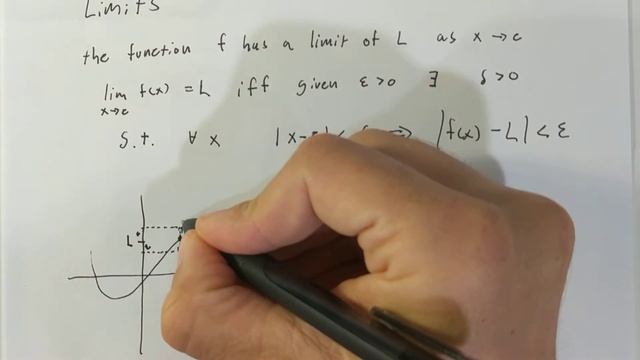 Limits
the function f has a limit of L as x → c
lim f(x) = L iff given ε > 0 ∃ δ > 0
x→c
s.t. ∀ x |x- < ⇒ |f(x) - L| < ε
L